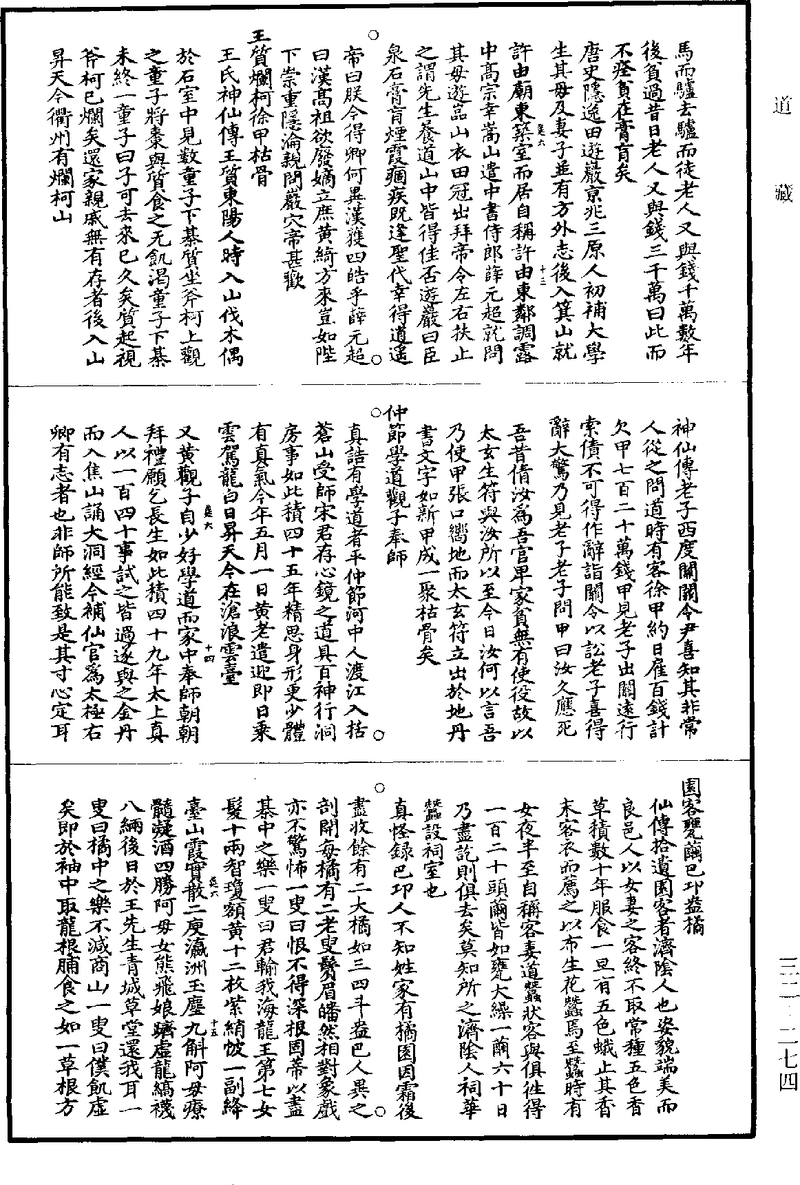 道藏
馬而驢去驢而徒老人又與錢千萬數年
後貧過昔日老人又與錢三千萬曰此而
不痊貧在膏肓矣
唐史隱逸田遊巖京兆三原人初補太學
生其母及妻子並有方外志後入箕山就
許由廟東築室而居自稱許由東鄰調露
中高宗幸嵩山遣中書侍郎薛元超就問
其母遊巖山衣田冠出拜帝令左右扶止
之謂先生養道山中皆得佳否遊巖曰臣
泉石膏肓煙霞痼疾既逢聖代幸得逍遥
帝曰朕今得卿何異漢獲四皓乎薛元超
曰漢高祖欲廢嫡立庶黃綺方來豈如陛
下崇重隱淪親問巖穴帝甚歡
王質爛柯徐甲枯骨
王氏神仙傳王質東陽人時入山伐木偶
於石室中見數童子下棊質坐斧柯上觀
之童子將棗與質食之无飢渴童子下棊
未終一童子曰子可去來已久矣質起視
斧柯已爛矣還家親戚無有存者後入山
昇天今衢州有爛柯山
神仙傳老子西度關關令尹喜知其非常
人從之問道時有客徐甲約日雇百錢計
欠甲七百二十萬錢甲見老子出關遠行
索債不可得作辭詣關令以訟老子喜得
辭大驚乃見老子老子問甲曰汝久應死
吾昔倩汝爲吾官卑家貧無有使役故以
太玄生符與汝所以至今日汝何以言吾
乃使甲張口嚮地而太玄符立出於地丹
書文字如新甲成一聚枯骨矣
仲節學道觀子奉師
真誥有學道者平仲節河中人渡江入括
蒼山受師宋君存心鏡之道具百神行洞
房事如此積四十五年精思身形更少體
有真氣今年五月一日黄老遣迎即日乘
雲駕龍白日昇天今在滄浪雲臺
又黄觀子自少好學道而家中奉師朝朝
拜禮願乞長生如此積四十九年太上真
人以一百四十事試之皆過遂與之金丹
而入焦山誦大洞經今補仙官爲太極右
卿有志者也非師所能致是其寸心定耳
園客甕繭巴邛盎橘
仙傳拾遺園客者濟陰人也姿貌端美而
良邑人以女妻之客終不取常種五色香
草積數十年服食一旦有五色蛾止其香
末客衣而薦之以布生花蠶焉至蠶時有
女夜半至自稱客妻道蠶狀客與俱徃得
一百二十頭繭皆如甕大繰一繭六十日
乃盡訖則俱去矣莫知所之濟陰人祠華
蠶設祠室也
真怪録巴邛人不知姓家有橘園因霜後
盡收餘有二大橘如三四斗盎巴人異之
剖開每橘有二老叟鬢眉皤然相對象戲
亦不驚怖一叟曰恨不得深根固蒂以盡
棊中之樂一叟曰君輸我海龍王第七女
髮十兩智瓊額黄十二枚紫綃帔一副絳
臺山霞實散二庾瀛洲玉塵九斛阿母療
髓凝酒四勝阿母女熊飛娘躋虛龍縞襪
八緉後日於王先生青城草堂還我耳一
叟曰橘中之樂不減商山一叟曰僕飢虛
矣即於袖中取龍根脯食之如一草根方
三二—二七四